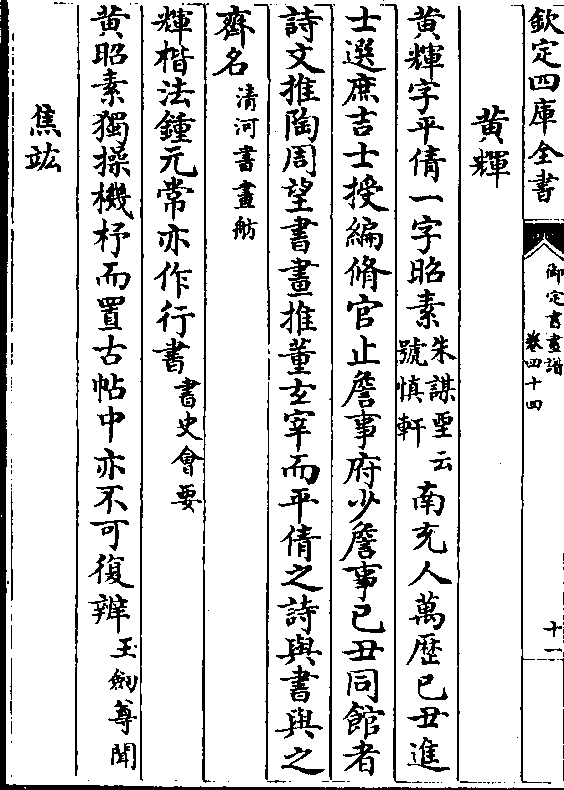 欽定四庫全書
御定書畫譜
卷四十四
十一
黃輝
黃輝字平倩一字昭素朱謀垔云號慎軒南充人萬歷己丑進
士選庶吉士授編脩官止詹事府少詹事己丑同館者
詩文推陶周望書畫推董𤣥宰而平倩之詩與書與之
齊名清河書畫舫
輝楷法鍾元常亦作行書書史會要
黃昭素獨操機杼而置古帖中亦不可復辨玉劍尊聞
焦竑